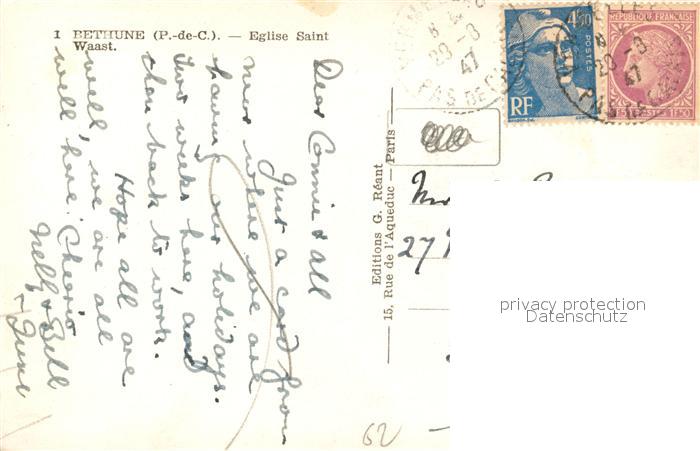 1 BETHUNE (P.-de-C.). — Eglise Saint
Waast.
Dear Connie & all
Just a card from
near where we are
having our holidays.
Two weeks here, and
then back to work.
Hope all are
well, we are all
well here. Cheerio
Nelly & Bill
& June
Editions G. Réant
15, Rue de l'Aqueduc — Paris
4F50
POSTES
RF
REPUBLIQUE FRANÇAISE
POSTES 1F50
28-8
47
PAS DE CALAIS
28-8
47
27
62
privacy protection
Datenschutz